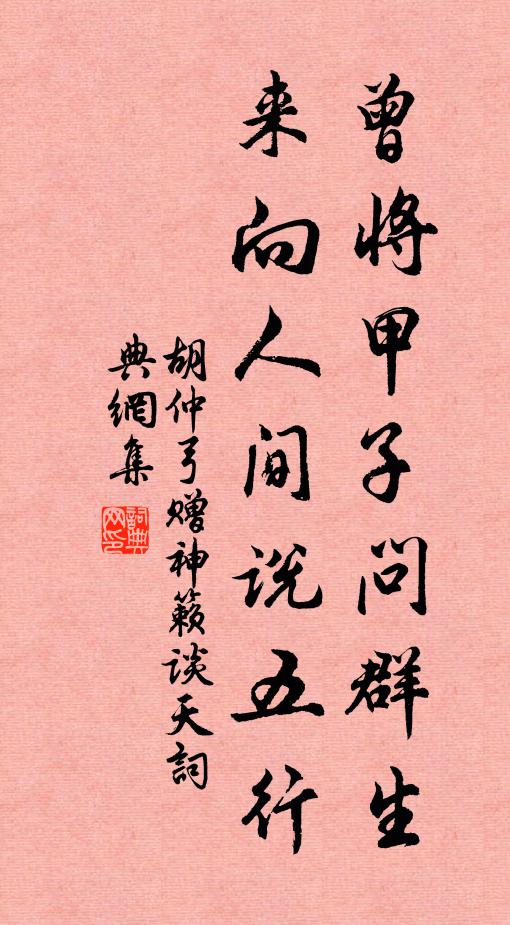 曾将甲子问群生
来向人间说五行
胡仲弓赠神籁谈天词
典網集
詞典网印